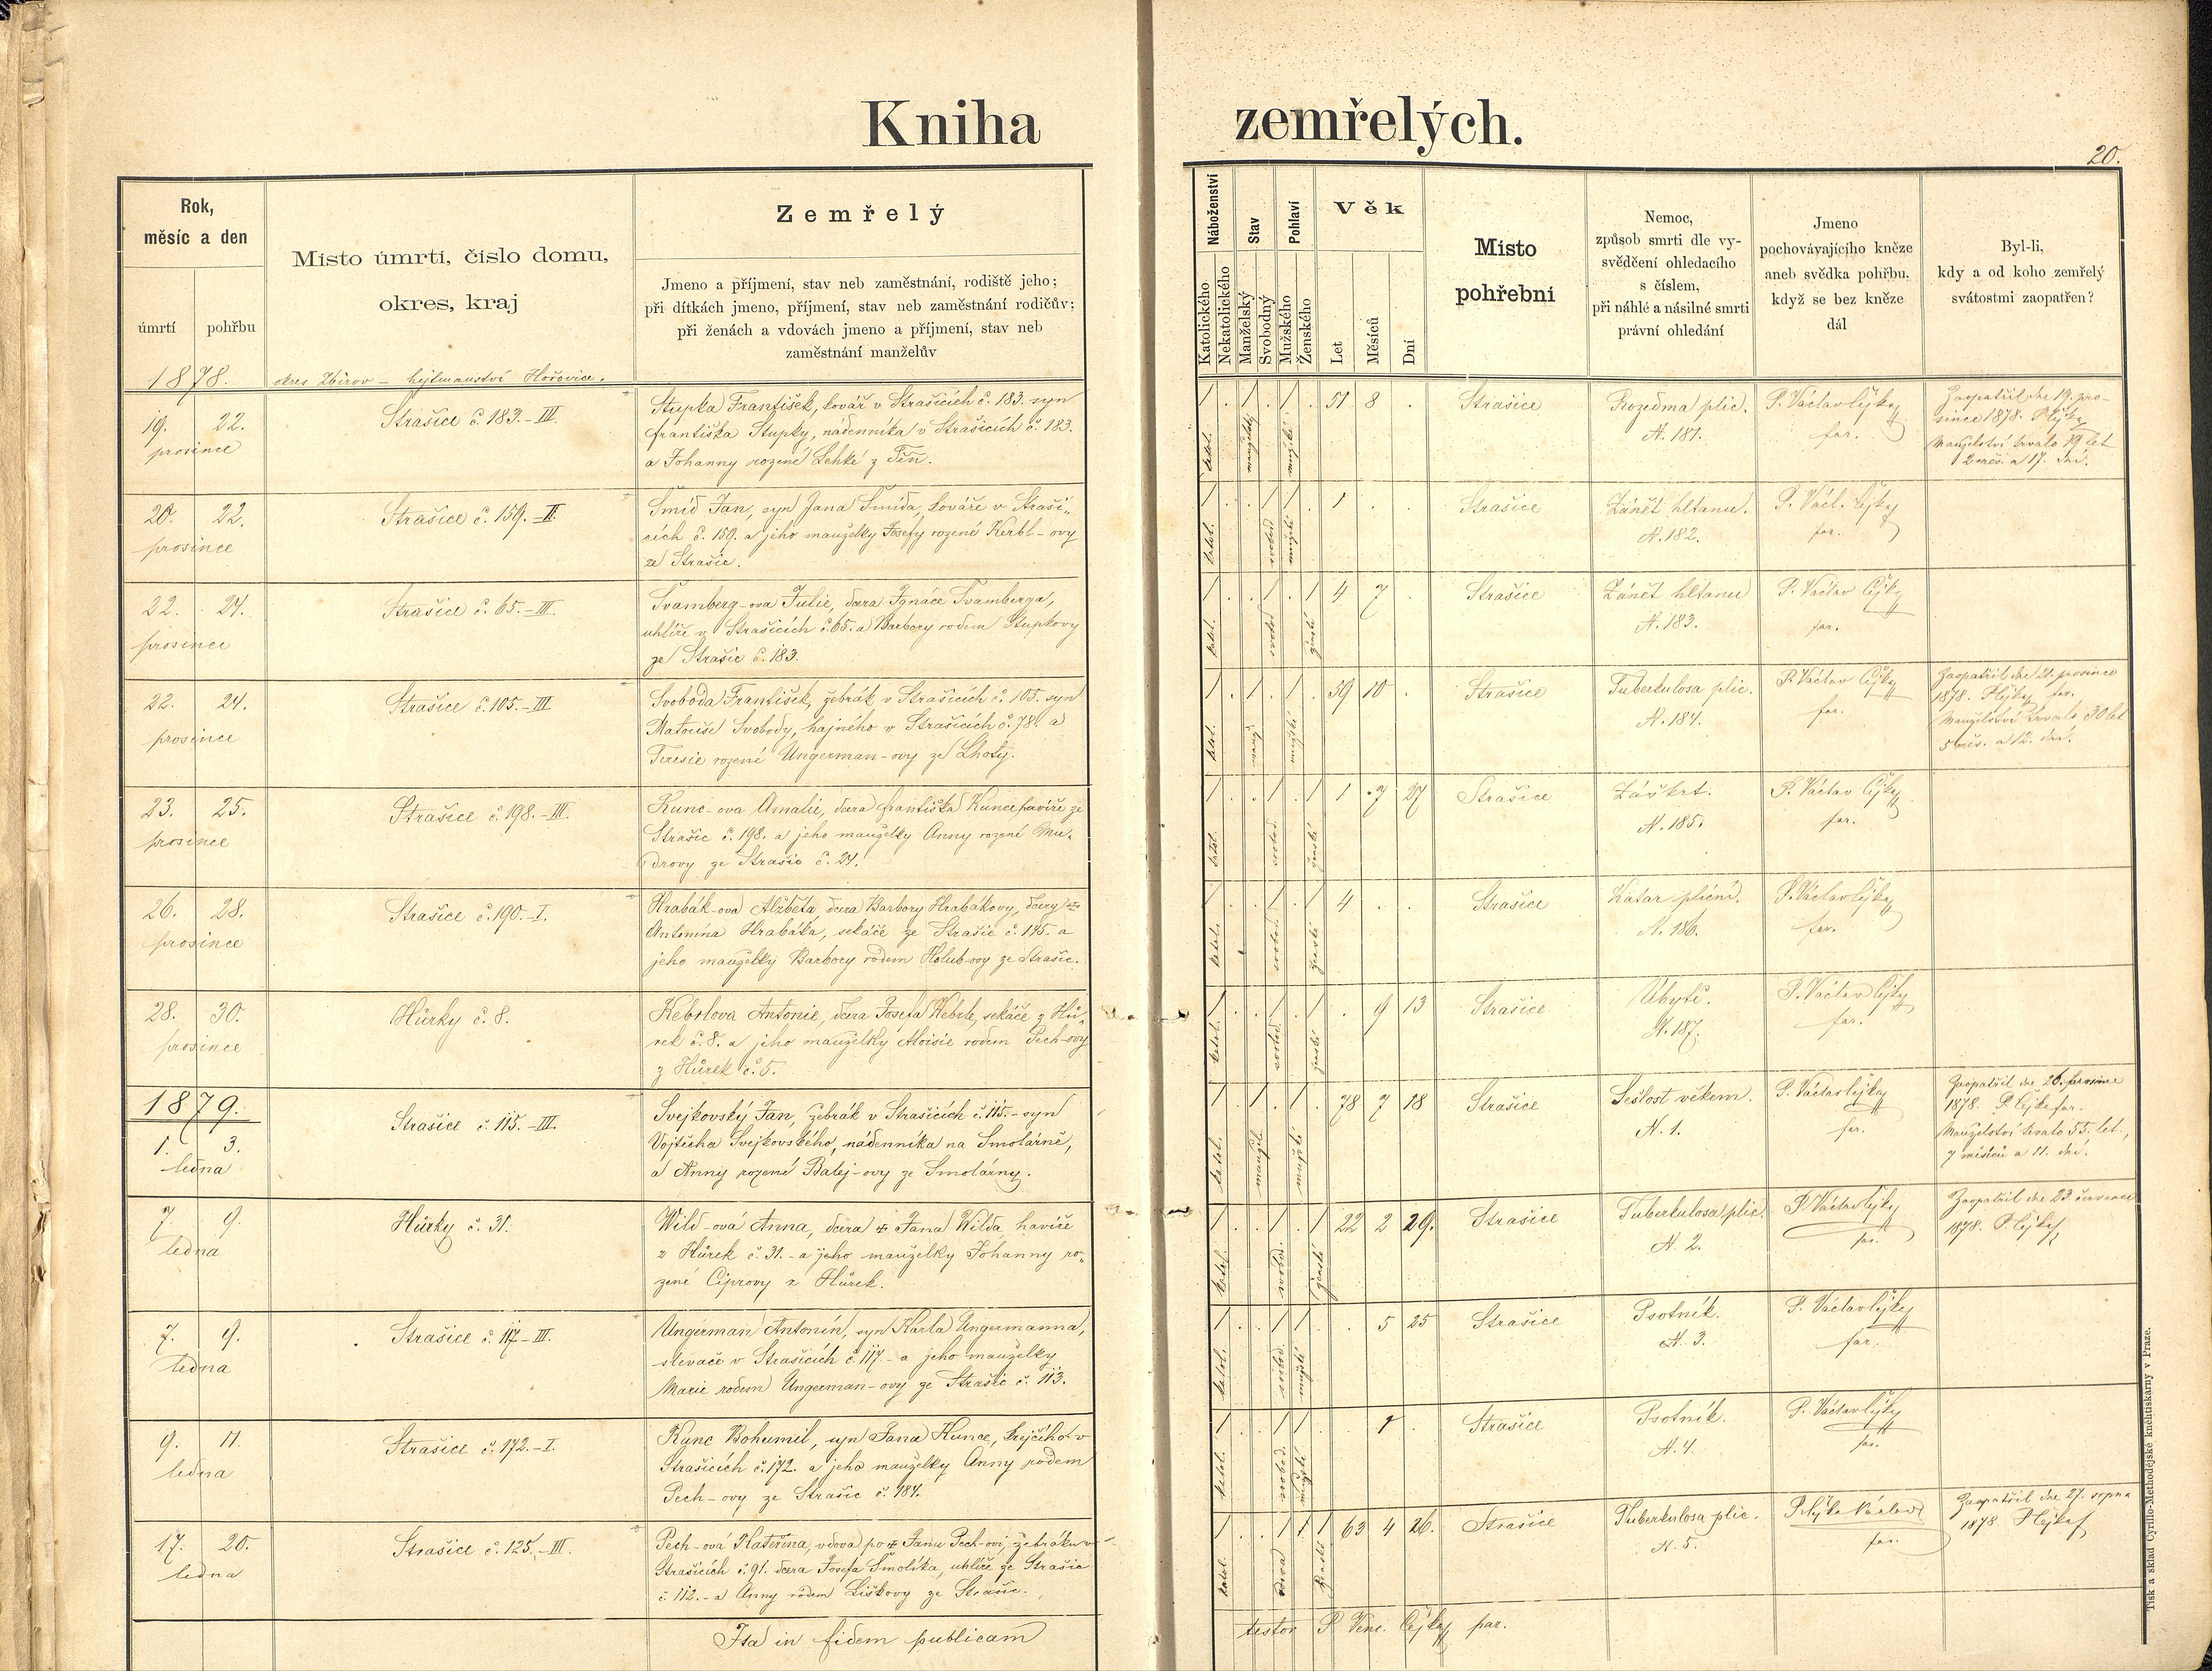 Kniha zemřelých.
20.
Rok,
měsíc a den
úmrtí
pohřbu
Místo úmrtí, číslo domu,
okres, kraj
Zemřelý
Jmeno a příjmení, stav neb zaměstnání, rodiště jeho;
při dítkách jmeno, příjmení, stav neb zaměstnání rodičův;
při ženách a vdovách jmeno a příjmení, stav neb
zaměstnání manželův
Náboženství
Katolického
Nekatolického
Stav
Manželský
Svobodný
Pohlaví
Mužského
Ženského
Věk
Let
Měsíců
Dní
Místo
pohřební
Nemoc,
způsob smrti dle vy-
svědčení ohledacího
s číslem,
při náhlé a násilné smrti
právní ohledání
Jmeno
pochovávajícího kněze
aneb svědka pohřbu,
když se bez kněze
dál
Byl-li,
kdy a od koho zemřelý
svátostmi zaopatřen?
1878.
okres Zbirov - hejtmanství Hořovice.
19. 22.
prosince
Strašice č. 183.-III.
Stupka František, kovář v Strašicích č. 183. syn
františka Stupky, nádenníka v Strašicích č. 183.
a Johanny rozené Lehké z Těň.
katol. manželský mužské
51 8 .
Strašice
Rozedma plic.
N. 181.
P. Václav Čejka
far.
Zaopatřil dne 19. pro-
since 1878. P. Čejka
Manželství trvalo 19 let
2 měs. a 17. dní.
20. 22.
prosince
Strašice č. 159.-II.
Šmíd Jan, syn Jana Šmída, kováře v Straši-
cích č. 159. a jeho manželky Josefy rozené Kerbl-ovy
ze Strašic.
katol. svobod. mužské
1 . .
Strašice
Zánět hltanu.
N. 182.
P. Václ. Čejka
far.
22. 24.
prosince
Strašice č. 65.-III.
Švamberg-ova Julie, dcera Ignáce Švamberga,
uhlíře v Strašicích č. 65. a Barbory rodem Stupkovy
ze Strašic č. 183.
katol. svobod. ženské
4 7 .
Strašice
Zánět hltanu
N. 183.
P. Václav Čejka
far.
22. 24.
prosince
Strašice č. 105.-III.
Svoboda František, žebrák v Strašicích č. 105. syn
Matouše Svobody, hajného v Strašicích č. 78. a
Teresie rozené Ungerman-ovy ze Lhoty.
katol. manž. mužské
59 10 .
Strašice
Tuberkulosa plic.
N. 184.
P. Václav Čejka
far.
Zaopatřil dne 21. prosince
1878. P. Čejka far.
Manželství trvalo 30 let
5 měs. a 12. dní.
23. 25.
prosince
Strašice č. 198.-III.
Kunc-ova Amalie, dcera františka Kunce havíře ze
Strašic č. 198. a jeho manželky Anny rozené Mu-
drovy ze Strašic č. 24.
katol. svobod. ženské
1 7 27
Strašice
Záškrt.
N. 185.
P. Václav Čejka
far.
26. 28.
prosince
Strašice č. 190.-I.
Hrabák-ova Alžběta, dcera Barbory Hrabákovy, dcery
Antonína Hrabáka, sekáče ze Strašic č. 145. a
jeho manželky Barbory rodem Holub-ovy ze Strašic.
katol. svobod. ženské
4 . .
Strašice
Katar plicní.
N. 186.
P. Václav Čejka
far.
28. 30.
prosince
Hůrky č. 8.
Kebrlova Antonie, dcera Josefa Kebrle, sekáče z Hů-
rek č. 8. a jeho manželky Aloisie rodem Pech-ovy
z Hůrek č. 5.
katol. svobod. ženské
. 9 13
Strašice
Úbytě.
N. 187.
P. Václav Čejka
far.
1879.
1. 3.
ledna
Strašice č. 115.-III.
Svejkovský Jan, žebrák v Strašicích č. 115.-syn
Vojtěcha Svejkovského, nádenníka na Smolárně,
a Anny rozené Balej-ovy ze Smolárny.
katol. manžels. mužské
78 7 18
Strašice
Sešlost věkem.
N. 1.
P. Václav Čejka
far.
Zaopatřil dne 26. prosince
1878. P. Čejka far.
Manželství trvalo 55. let,
7 měsíců a 11. dní.
7. 9.
ledna
Hůrky č. 31.
Wild-ová Anna, dcera Jana Wilda, havíře
z Hůrek č. 31.-a jeho manželky Johanny ro-
zené Ciprovy z Hůrek.
katol. svobod. ženské
22 2 29.
Strašice
Tuberkulosa plic.
N. 2.
P. Václav Čejka
far.
Zaopatřil dne 23. července
1878. P. Čejka
7. 9.
ledna
Strašice č. 117-III.
Ungerman Antonín, syn Karla Ungermanna,
slevače v Strašicích č. 117-a jeho manželky
Marie rodem Ungerman-ovy ze Strašic č. 113.
katol. svobod. mužské
. 5 25
Strašice
Psotník.
N. 3.
P. Václav Čejka
far.
9. 11.
ledna
Strašice č. 172.-I.
Kunc Bohumil, syn Jana Kunce, krejčího v
Strašicích č. 172. a jeho manželky Anny rodem
Pech-ovy ze Strašic č. 184.
katol. svobod. mužské
. 1
Strašice
Psotník.
N. 4.
P. Václav Čejka
far.
17. 20.
ledna
Strašice č. 125.-III.
Pech-ová Kateřina, vdova po Janu Pech-ovi, žebráku v
Strašicích č. 91. dcera Josefa Smolíka, uhlíře ze Strašic
č. 112.-a Anny rodem Liškovy ze Strašic.
katol. vdova ženské
63 4 26.
Strašice
Tuberkulosa plic.
N. 5.
P. Čejka Václav
far.
Zaopatřil dne 27. srpna
1878. P. Čejka
Ita in fidem publicam
testor P. Venc. Čejka par.
Tisk a sklad Cyrillo-Methodějské kněhtiskárny v Praze.